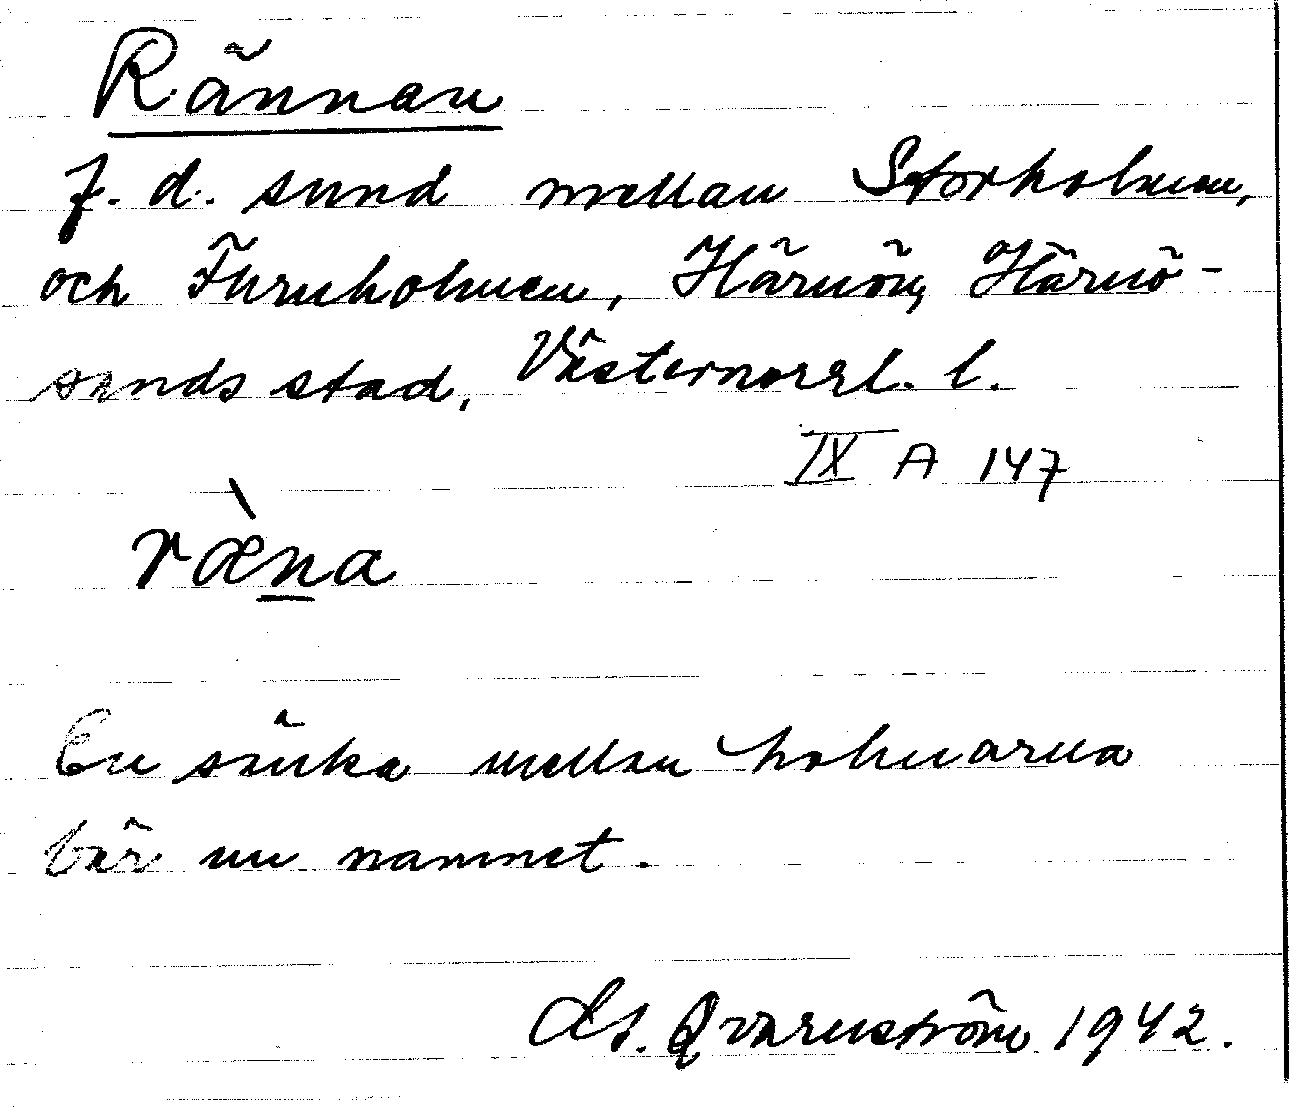 Rännan
f. d. sund mellan Storholmen,
och Furuholmen, Härnön, Härnö-
sands stad, Västernorrl. l.
IX A 147
ræ̀n̲a
En sänka mellan holmarna
bär nu namnet.
Qvarnström 1942.